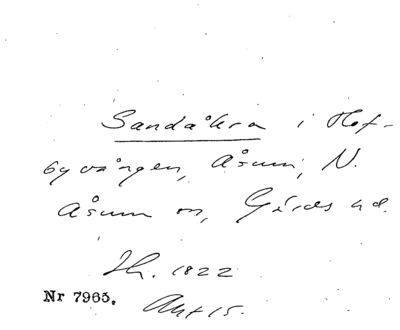 Sandåkra i Hof-
byvången, Åsum, N.
Åsum sn, Gärds hd.
Sk. 1822
Nr 7965. Akt 15.